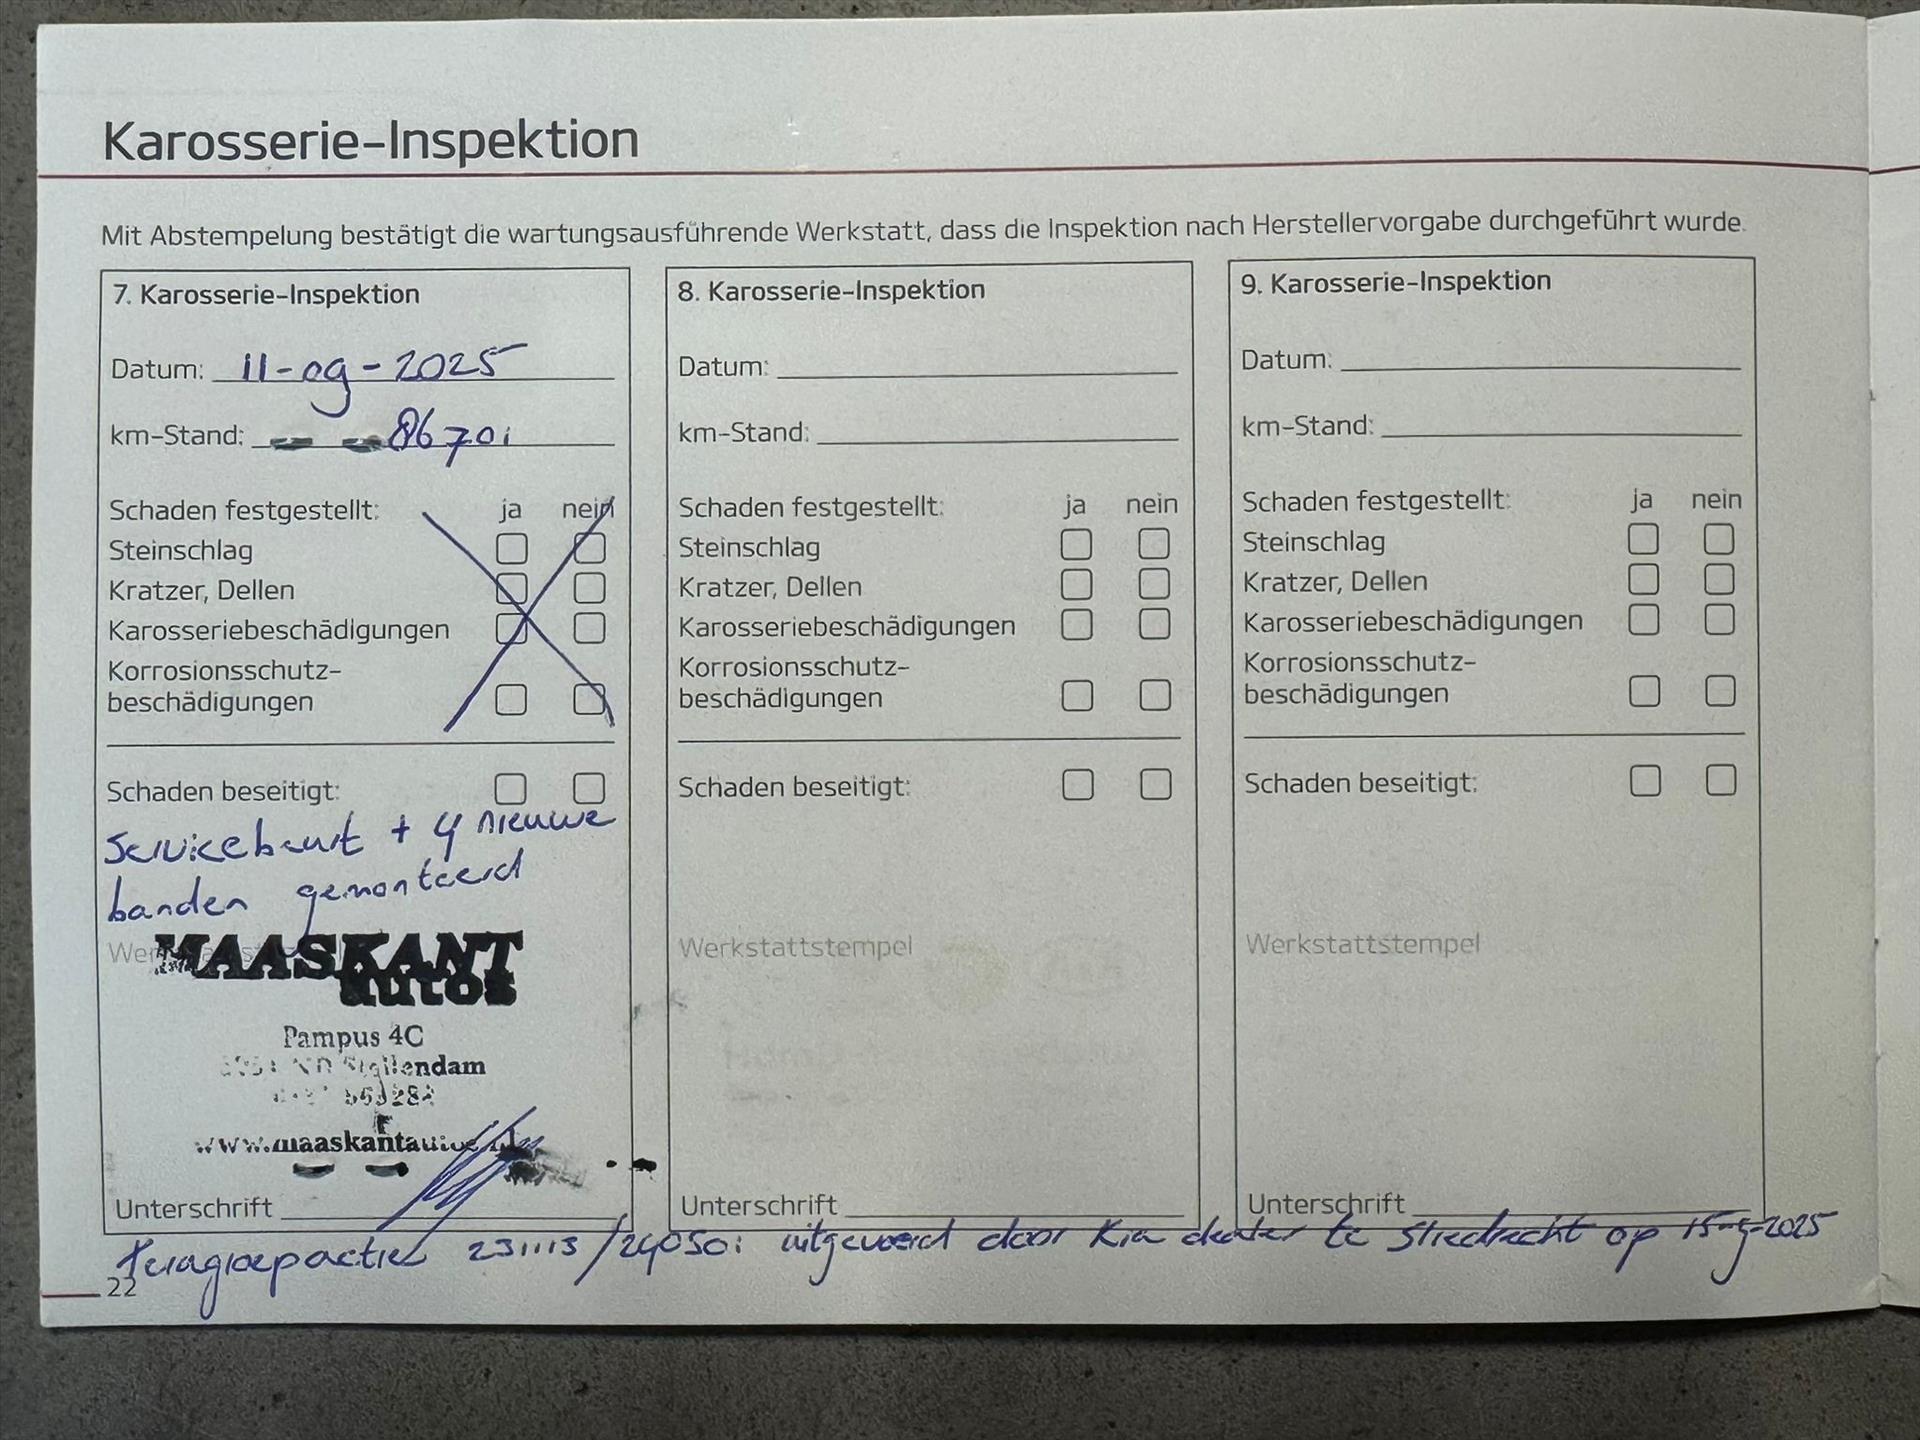 Karosserie-Inspektion
Mit Abstempelung bestätigt die wartungsausführende Werkstatt, dass die Inspektion nach Herstellervorgabe durchgeführt wurde.
7. Karosserie-Inspektion
Datum: 11-09-2025
km-Stand: 86701
Schaden festgestellt: ja nein
Steinschlag
Kratzer, Dellen
Karosseriebeschädigungen
Korrosionsschutz-
beschädigungen
Schaden beseitigt:
Servicebeurt + 4 nieuwe
banden gemonteerd
MAASKANT
autos
Pampus 4C
Stellendam
www.maaskantautos.nl
Unterschrift
8. Karosserie-Inspektion
Datum:
km-Stand:
Schaden festgestellt: ja nein
Steinschlag
Kratzer, Dellen
Karosseriebeschädigungen
Korrosionsschutz-
beschädigungen
Schaden beseitigt:
Werkstattstempel
Unterschrift
9. Karosserie-Inspektion
Datum:
km-Stand:
Schaden festgestellt: ja nein
Steinschlag
Kratzer, Dellen
Karosseriebeschädigungen
Korrosionsschutz-
beschädigungen
Schaden beseitigt:
Werkstattstempel
Unterschrift
Terugroepacties 231113/240501 uitgevoerd door Kia dealer te Sliedrecht op 15-9-2025
22